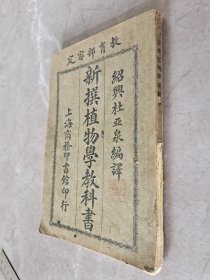 教育部審定
紹興杜亞泉編譯
新撰植物學教科書
上海商務印書館印行